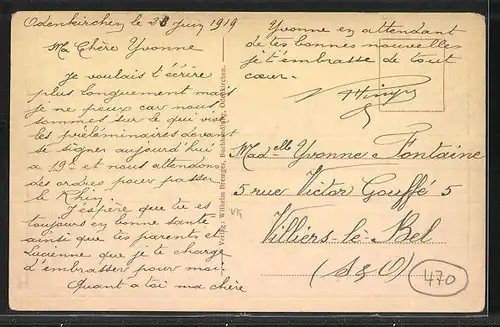 Odenkirchen le 28 Juin 1919
Ma Chère Yvonne
Je voulais t'écrire
plus longuement mais
je ne peux car nous
sommes sur le qui vive
les préléminaires devant
se signer aujourd'hui
a 19h et nous attendons
des ordres pour passer
le Rhin
J'éspère que tu es
toujours en bonne santé
ainsi que tes parents et
Lucienne que je te charge
d'embrasser pour moi.
Quant a toi ma chère
Verlag: Wilhelm Brenger, Buchhandlung, Odenkirchen.
Yvonne en attendant
de tes bonnes nouvelles
je t'embrasse de tout
cœur.
Mad elle Yvonne Fontaine
5 rue Victor Gouffé 5
Villiers-le-Bel
(S & O)
470